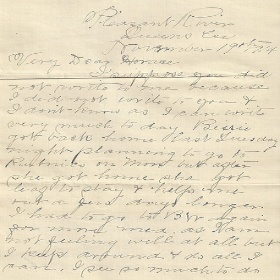 Pleasant River
Queens Co
November 19th 24
Very Dear
I suppose you did
not write to me because
I did not write to you &
I don't know as I can write
very much to day. Bessie
got back home last Tuesday
night planning to go to
on Mon but after
she got home she got
leave to stay & help me
out a few days longer.
I had to go to B W again
for more med. as I am
not feeling well at all but
I keep around & do all I
can. I see so much to do